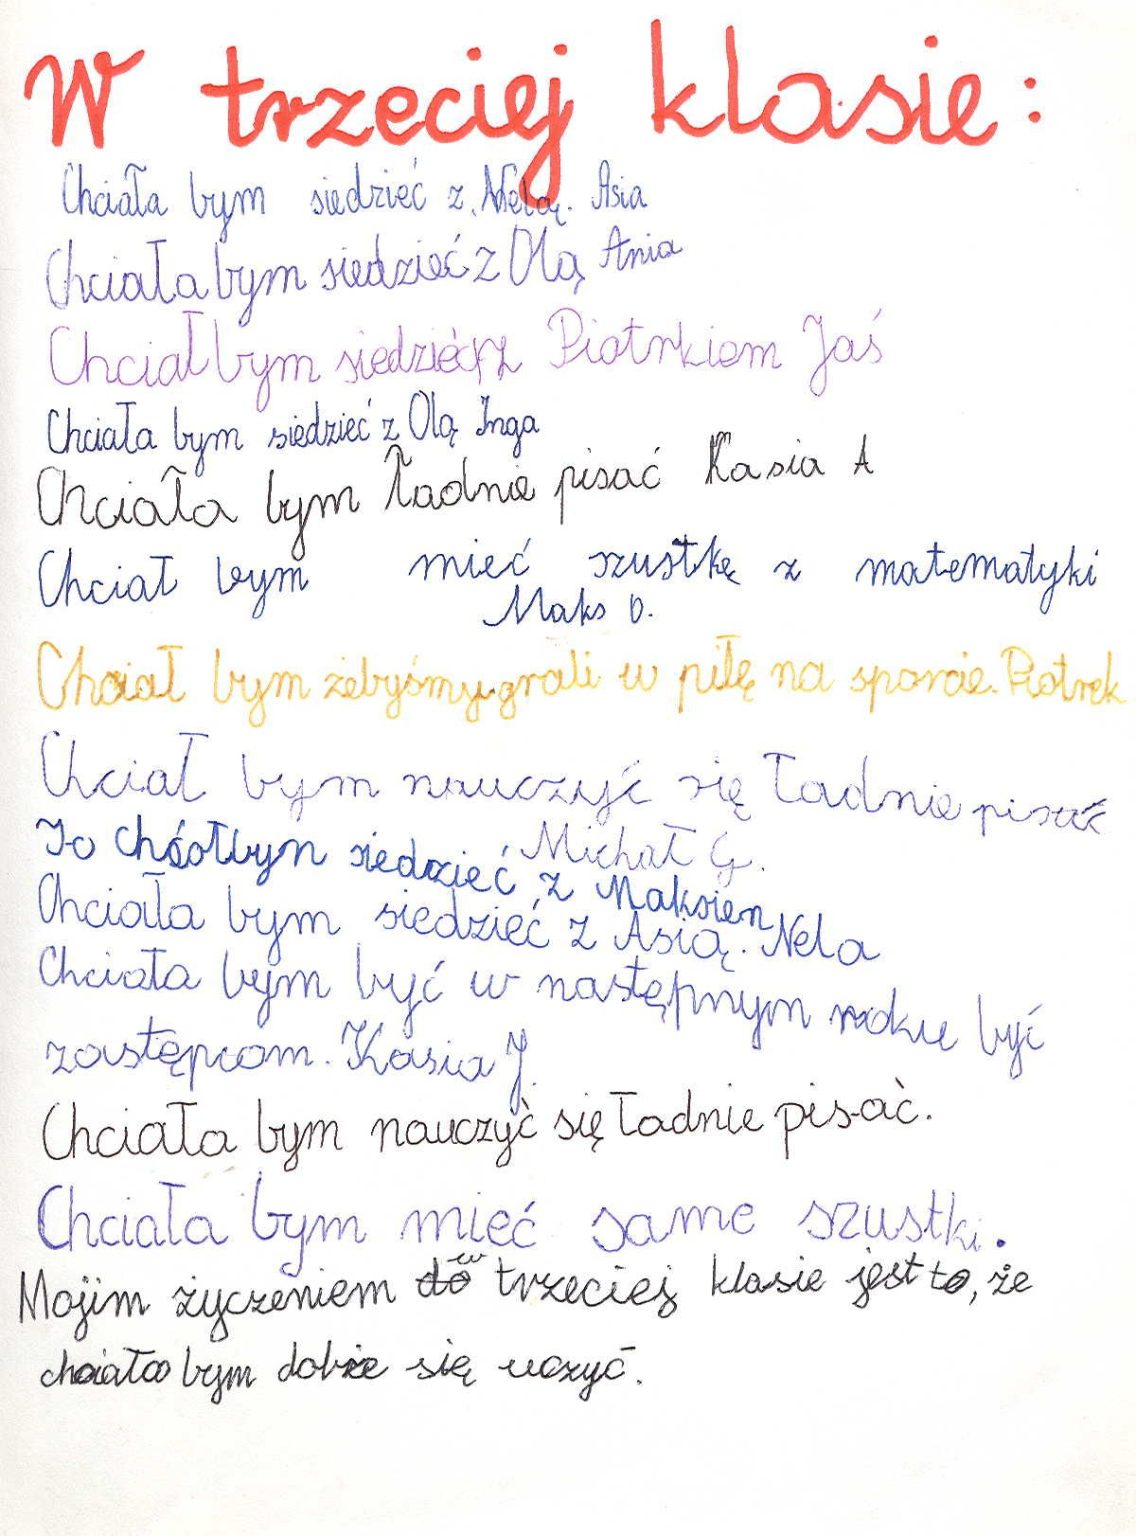 W trzeciej klasie:
Chciała bym siedzieć z Nelą. Asia
Chciała bym siedzieć z Olą Ania
Chciał bym siedzieć z Piotrkiem Jaś
Chciała bym siedzieć z Olą Inga
Chciała bym ładnie pisać Kasia A
Chciał bym mieć szustkę z matematyki
Maks D.
Chciał bym żebyśmy grali w piłę na sporcie. Piotrek
Chciał bym nauczyć się ładnie pisać
Michał G.
Jo siedzieć z Maksien
Chciała bym siedzieć z Asią. Nela
Chciała bym być w następnym roku być
zastępcom. Kasia J.
Chciała bym nauczyć się ładnie pis-ać.
Chciała bym mieć same szustki.
Mojim życzeniem w trzeciej klasie jest to, że
chciała bym dobże się uczyć.